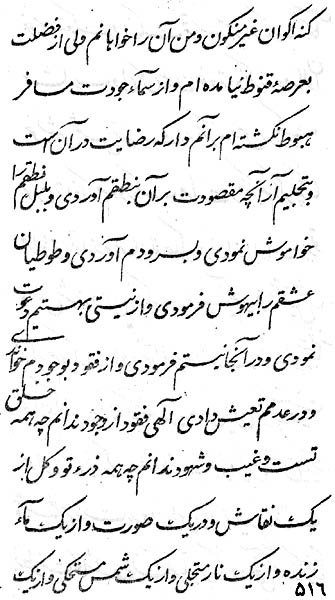 کنه اکوان غیر منکون و من آن را خواهانم ولی از فضلت
بعرصهٔ قنوط نیامده ام و از سمآء جودت مسافر
هبوط نکشته ام برآنم دار که رضایت در آن است
و بتجلیم آر آنچه مقصودت بر آن بنطقم آوردی و بلبل نطقم را
خواموش نمودی و بسرودم آوردی و طوطیان
عشقم را بیهوش فرمودی و از نیستی بهستیم دعوت
نمودی و در آنجا نیستم فرمودی و از فقود بوجودم خواندی
و در عدمم تعیش دادی الهی فقود از وجود ندانم چه همه خلق
تست و غیب و شهود ندانم چه همه ذرء تو و کل از
یک نقاش و در یک صورت و از یک مآء
زنده و از یک نار متجلی و از یک شمس مستحکی و از یک
۵۱٦